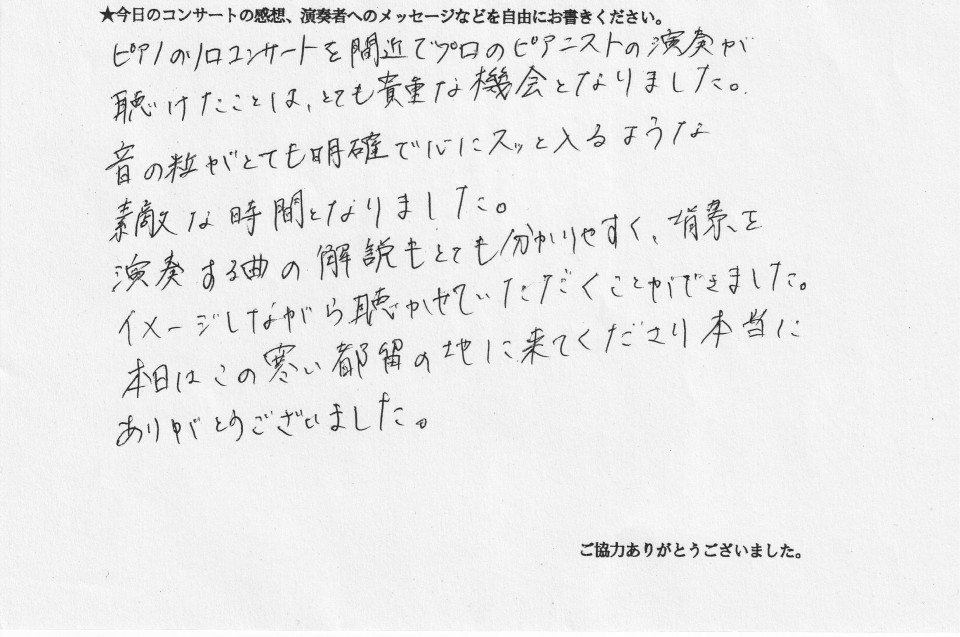 ★今日のコンサートの感想、演奏者へのメッセージなどを自由にお書きください。
ピアノのソロコンサートを間近でプロのピアニストの演奏が
聴けたことは、とても貴重な機会となりました。
音の粒がとても明確で心にスッと入るような
素敵な時間となりました。
演奏する曲の解説もとても分かりやすく、情景を
イメージしながら聴かせていただくことができました。
本日はこの寒い都留の地に来てくださり本当に
ありがとうございました。
ご協力ありがとうございました。